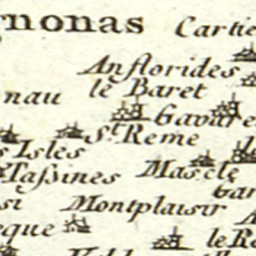 nonas
Cartie
Anflorides
le Baret
nau
Gavare
St. Reme
s Isles
Tassines
Mascle
Montplaisir
que
le R